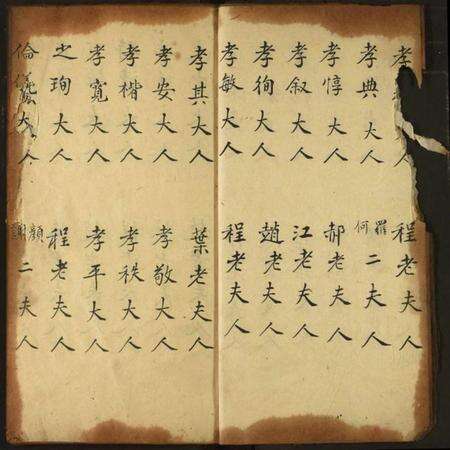 孝 大人
孝典大人
孝惇大人
孝叙大人
孝徇大人
孝敏大人
程老夫人
羅何二夫人
郝老夫人
江老夫人
趙老夫人
程老夫人
孝其大人
孝安大人
孝楷大人
孝寬大人
之珣大人
倫儀大人
葉老夫人
孝敬大人
孝秩大人
孝平大人
程老夫人
顏謝二夫人